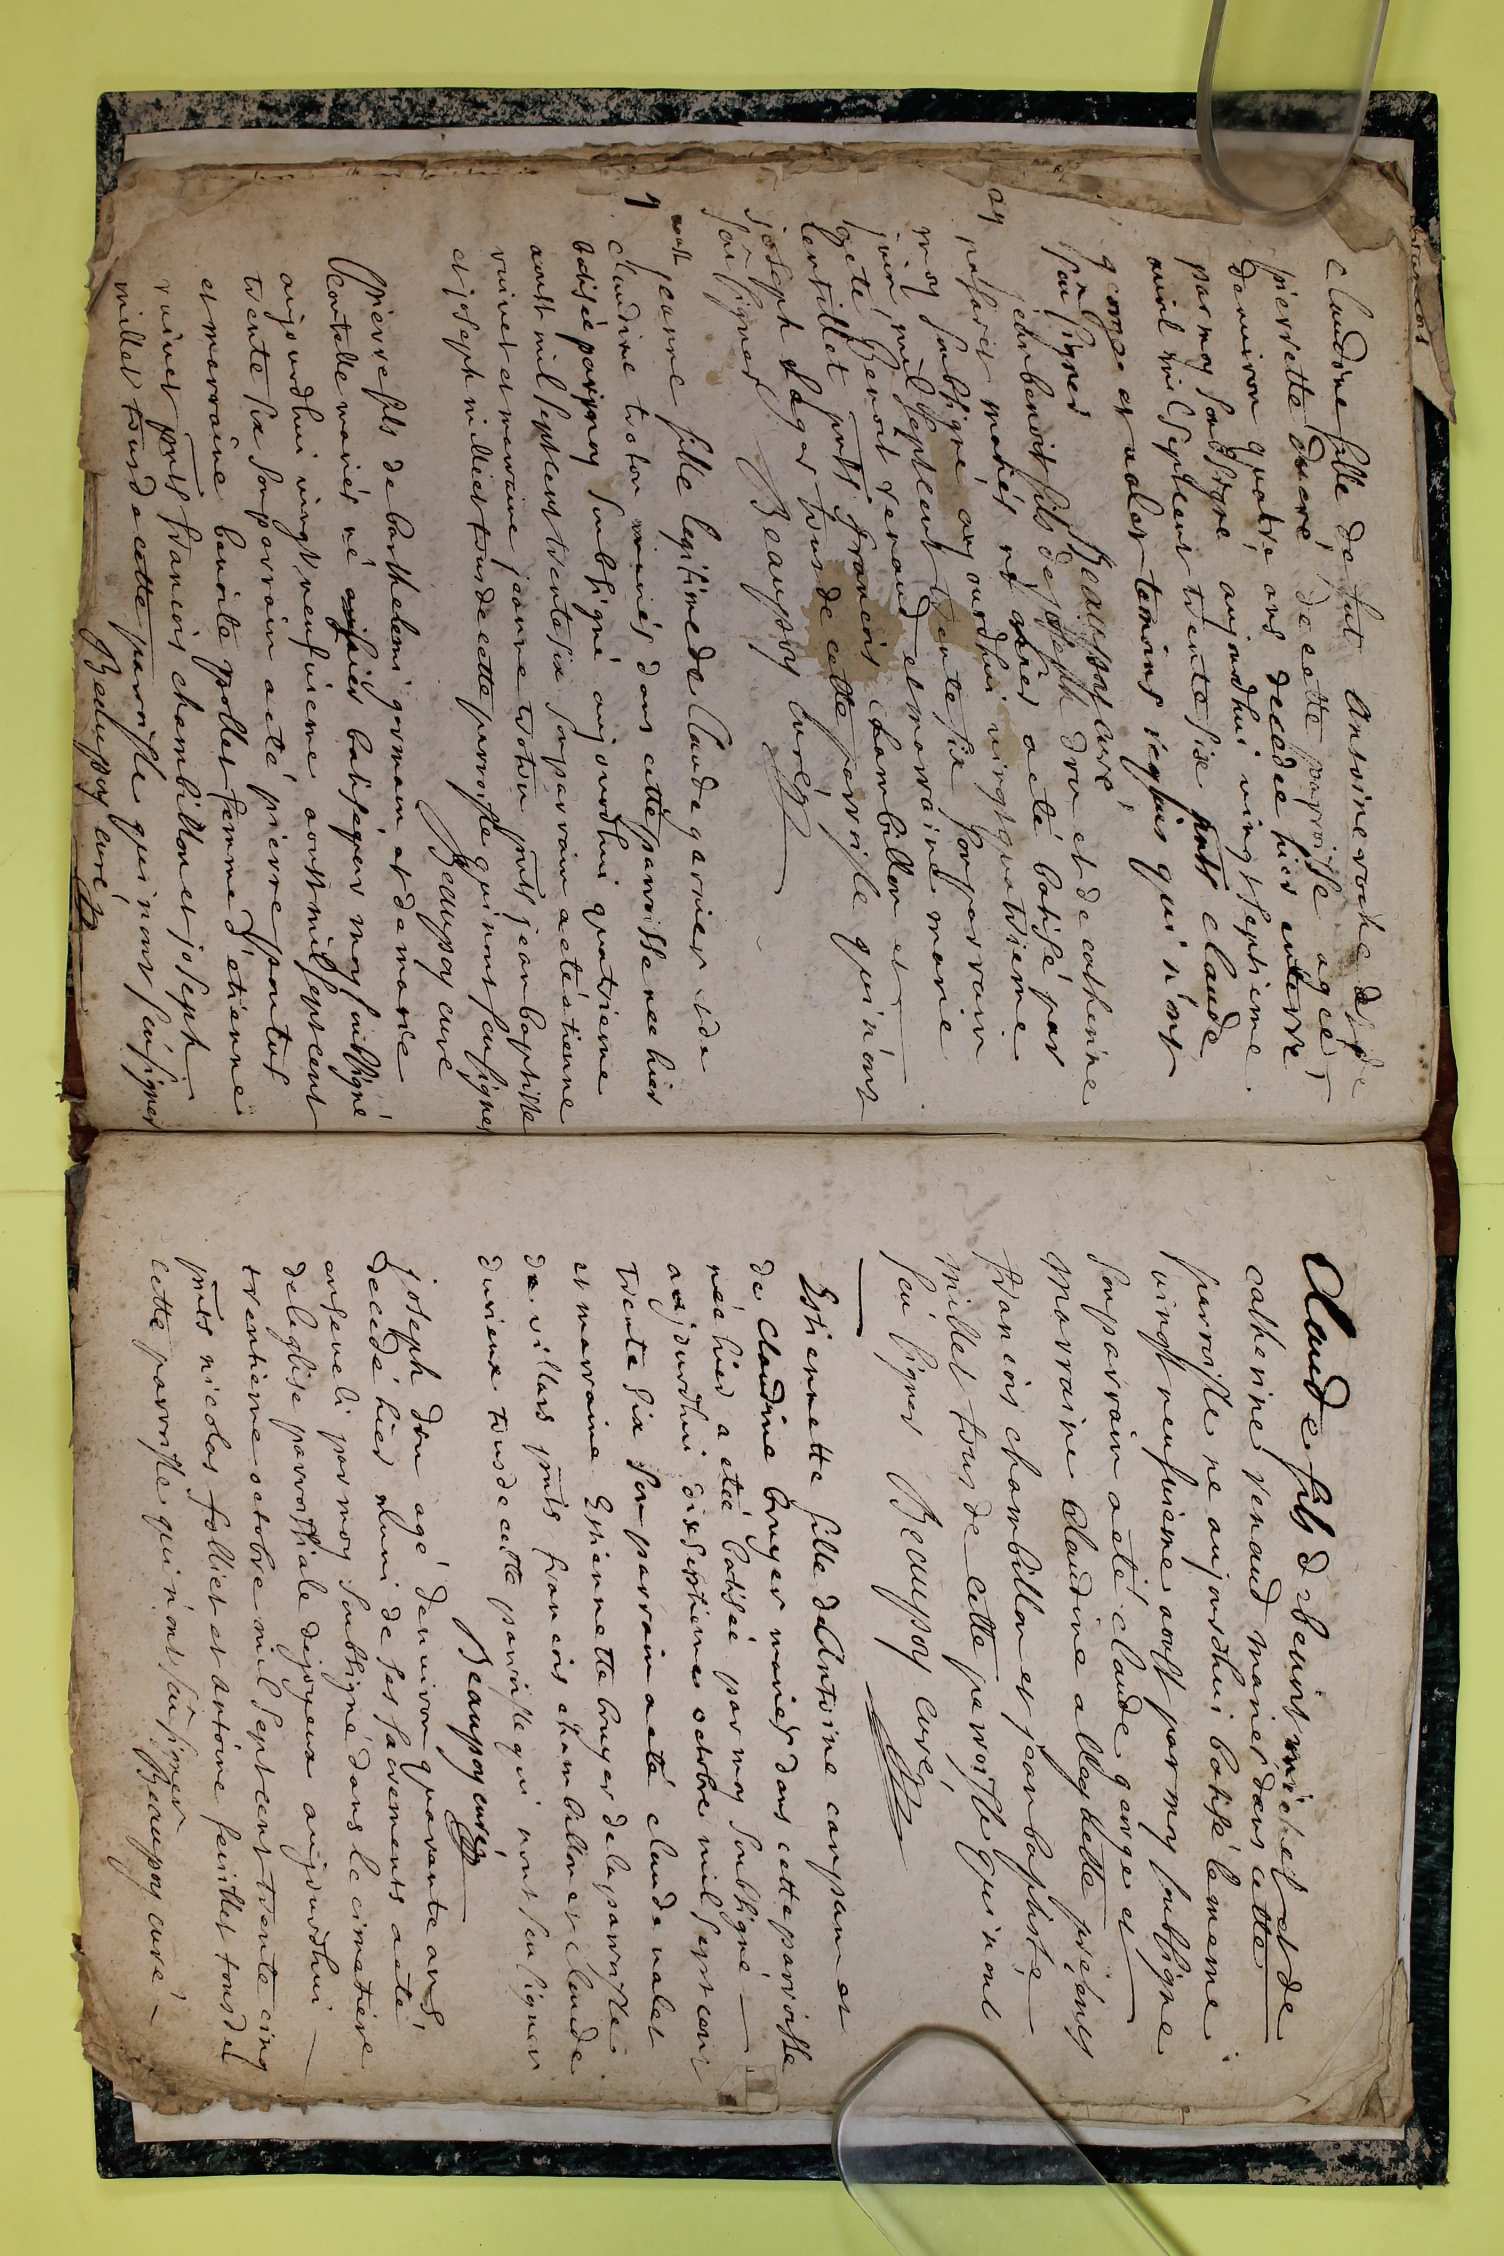 claudine fille de fut Antoine roche et de
pierrette ducré de cette parroisse agée
denviron quatre ans decedée hier enterré
par moy soubsigné aujourdhui vingt septieme
avril mil sept cent trente six pnts claude
george et valet temoins requis qui n'ont
sçu signer Beaupoy curé
jean benoit fils de joseph dru et de catherine
mariés né hier a eté batisé par
moy soubsigné aujourdhui vingt quatrieme
juin mil sept cent trente six son parrain
a eté Benoit renaud et marraine marie
pnts francois chambillon et
joseph tous de cette parroisse qui n'ont
sçu signer Beaupoy curé
aoust
jeanne fille legitime de Claude garnier et de
claudine mariés dans cette parroisse nee hier
batisée par moy soubsigné aujourdhui quatrieme
aoust mil sept cent trente six son parrain a eté etienne
et marraine jeanne pnts jean baptiste
et joseph milliet tous de cette parroisse qui n'ont sçu signer
Beaupoy curé
pierre fils de barthelemi germain et de marie
mariés né hier batisé par moy soubsigné
aujourdhui vingt neufvieme aoust mil sept cent
trente six son parrain a eté pierre
et marraine benoite pollet femme d'etienne
pnts francois chambillon et joseph
millet tous de cette parroisse qui n'ont sçu signer
Beaupoy curé
Claude fils de benoit michel et de
catherine renaud mariés dans cette
parroisse né aujourdhui batisé le meme
vingt neufvieme aoust par moy soubsigné
son parrain a eté claude garge et
marraine Claudine presents
francois chambillon et jean baptiste
millet tous de cette parroisse qui n'ont
sçu signer Beaupoy curé
Estiennette fille de Antoine et
de claudine bruyer mariés dans cette parroisse
née hier a etée batisée par moy soubsigné
aujourdhui dixseptieme octobre mil sept cent
trente six son parrain a eté claude valet
et marraine Estiennette bruyer de la parroisse
de villars pnts francois chambillon et claude
durieux tous de cette parroisse qui n'ont sçu signer
Beaupoy curé
joseph dru agé denviron quarante ans
decedé hier muni de ses sacrements a eté
enseveli par moy soubsigné dans le cimetiere
de leglise parroissiale de joyeux aujourdhui
trentieme octobre mil sept cent trente cinq
pnts nicolas folliet et antoine feuillet tous de
cette parroisse qui n'ont sçu signer
Beaupoy curé